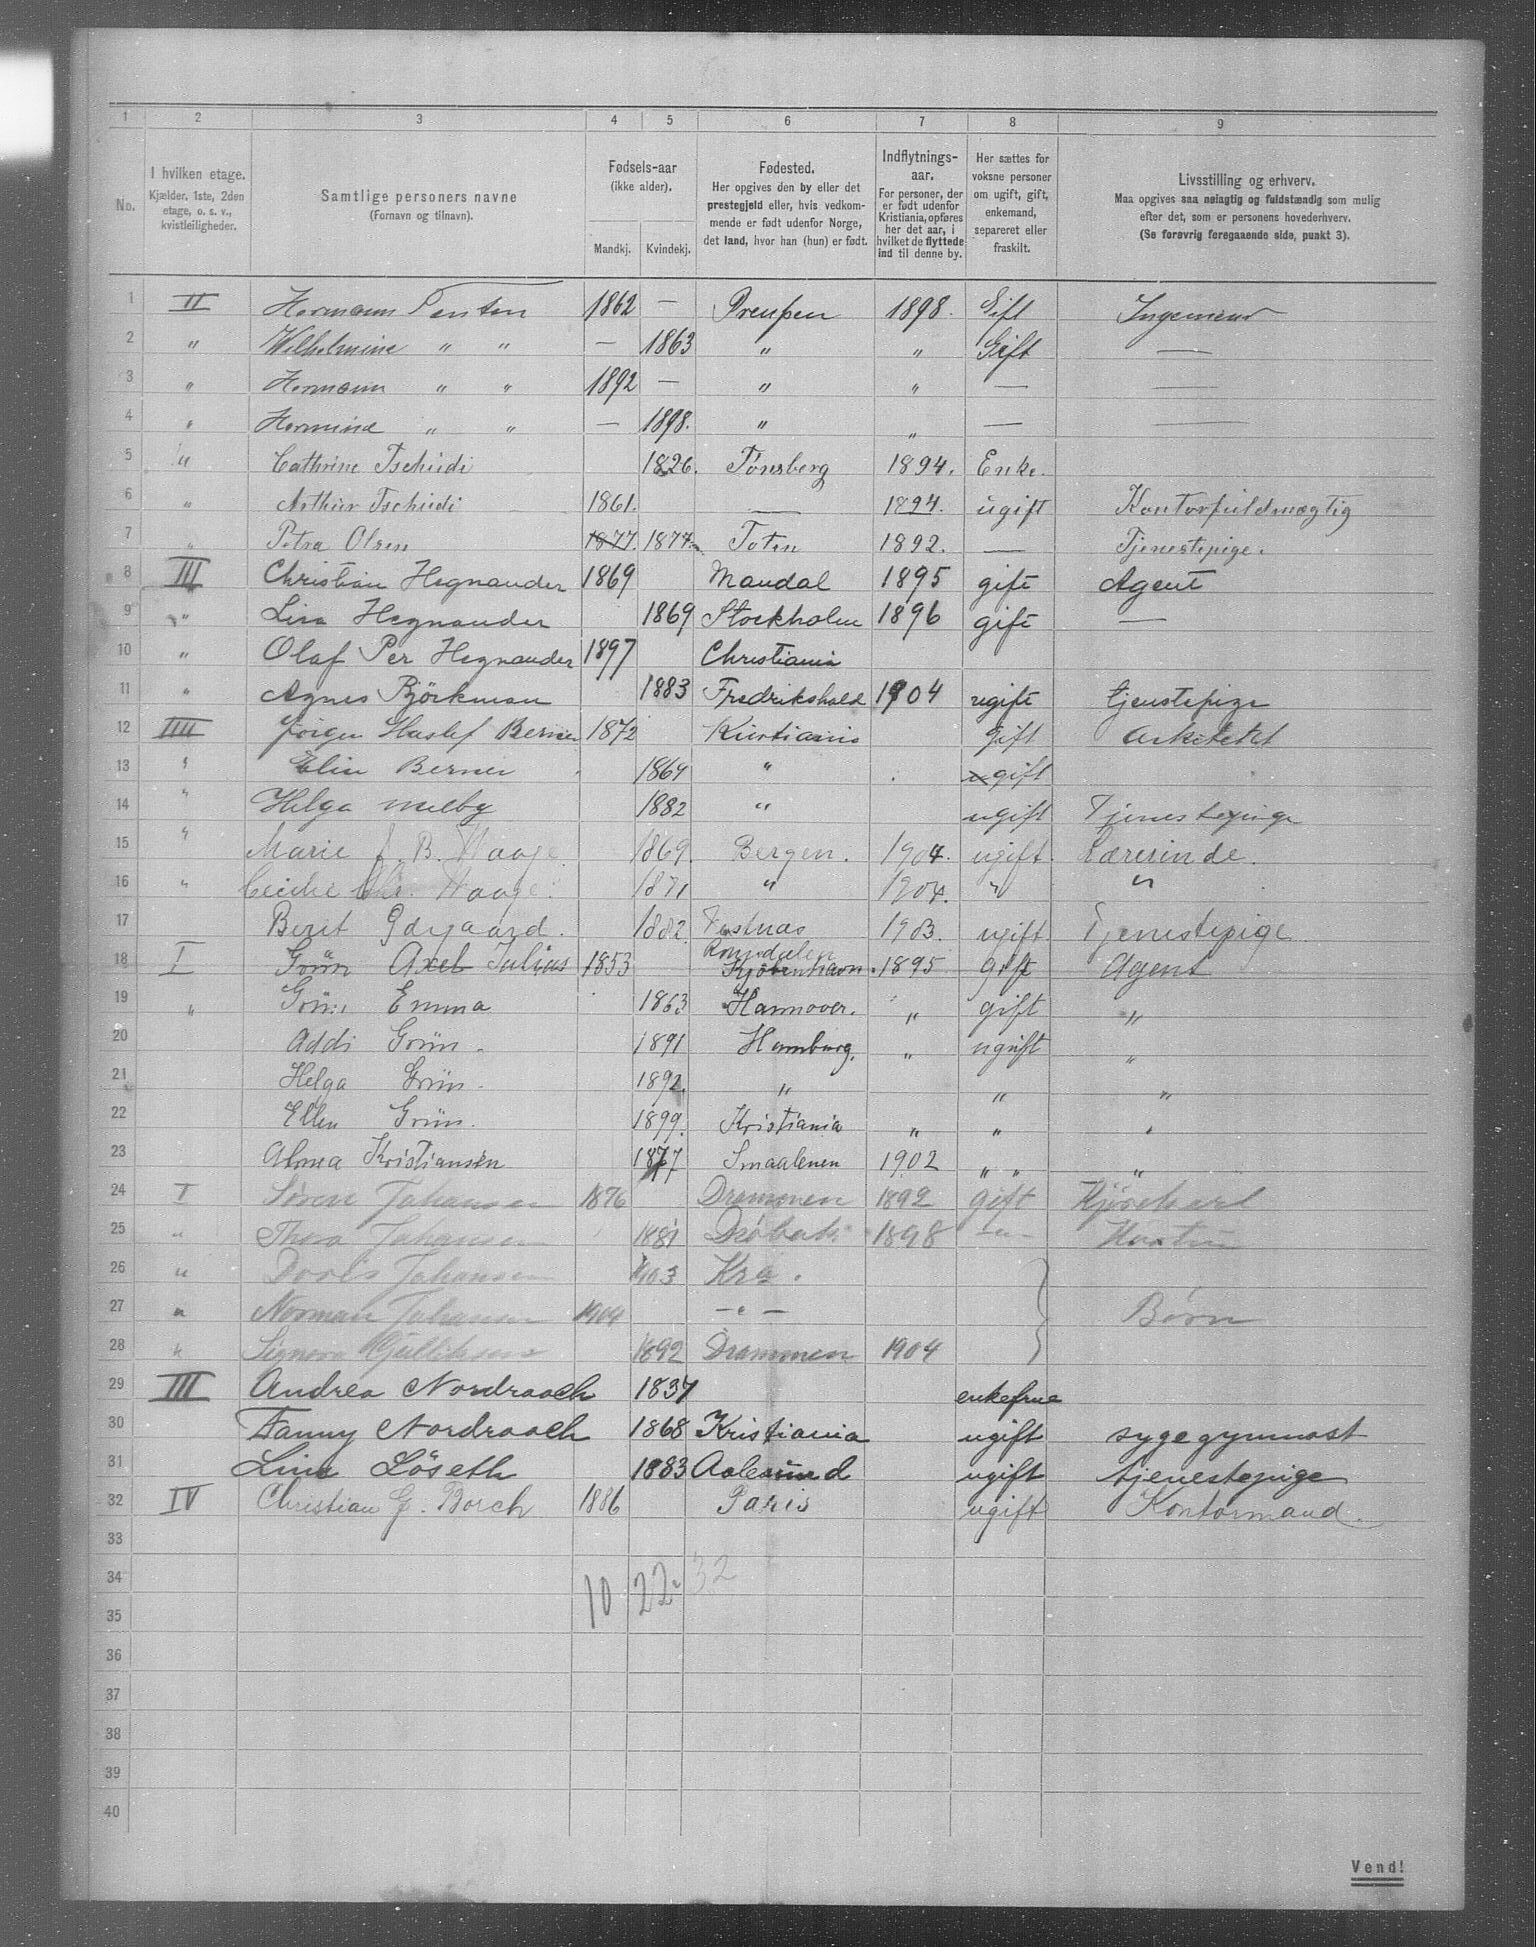 1 2 3 4 5 6 7 8 9
No.
I hvilken etage.
Kjælder, 1ste, 2den
etage, o. s. v.,
kvistleiligheder.
Samtlige personers navne
(Fornavn og tilnavn).
Fødsels-aar
(ikke alder).
Mandkj. Kvindekj.
Fødested.
Her opgives den by eller det
prestegjeld eller, hvis vedkom-
mende er født udenfor Norge,
det land, hvor han (hun) er født.
Indflytnings-
aar.
For personer, der
er født udenfor
Kristiania, opføres
her det aar, i
hvilket de flyttede
ind til denne by.
Her sættes for
voksne personer
om ugift, gift,
enkemand,
separeret eller
fraskilt.
Livsstilling og erhverv.
Maa opgives saa nøiagtig og fuldstændig som mulig
efter det, som er personens hovederhverv.
(Se forøvrig foregaaende side, punkt 3).
1 II Hermann Penton 1862 — Preußen 1898. Gift Ingenieur
2 " Wilhelmine " " — 1863 " " Gift —
3 " Hermann " " 1892 — " " — —
4 " Hermine " " — 1898. " " — —
5 " Cathrine Tschudi 1826. Tønsberg 1894. Enke.
6 " Arthur Tschudi 1861. — 1894. ugift Kontorfuldmægtig
7 " Petra Olsen 1877. 1877. Toten 1892. — Tjenestepige.
8 III Christian Hegnander 1869 Mandal 1895 gift Agent
9 " Lisa Hegnander 1869 Stockholm 1896 gift —
10 " Olaf Per Hegnander 1897 Christiania
11 " Agnes Björkman 1883 Fredrikshald 1904 ugift tjenstepige
12 IIII Jörgen Haslef Berner 1872 Kristiania gift Arkitekt
13 " Elin Berner 1869 " ugift
14 " Helga Melby 1882 " ugift Tjenestepige
15 " Marie J. B. Waage 1869. Bergen. 1904. ugift. Lærerinde.
16 " Cecilie Chr. Waage. 1871 " 1904. " "
17 Berit Ødegaard. 1882. Vestnæs Romsdalen 1903. ugift Tjenestepige
18 I Grün Axel Julius 1853 Kjöbenhavn. 1895 gift Agent
19 " Grün Emma 1863 Hannover. " gift "
20 Addi Grün. 1891 Hamburg. " ugift "
21 Helga Grün. 1892. " " "
22 Ellen Grün. 1899. Kristiania " " "
23 Alma Kristiansen 1877 Smaalenen 1902 " " "
24 I Sören Johansen 1876 Drammen 1892 gift Kjörekarl
25 " Thora Johansen 1881 Dröbak 1898 —"— Hustru
26 " Doris Johansen 1903 Kra.
27 " Norman Johansen 1904 —"— Børn
28 " Signora Gulliksen 1892 Drammen 1904
29 III Andrea Nordraach 1837 enkefrue
30 Fanny Nordraach 1868 Kristiania ugift sygegymnast
31 Lina Löseth 1883 Aalesund ugift tjenestepige
32 IV Christian G. Borch 1886 Paris ugift Kontormand.
33
34 10 22. 32
35
36
37
38
39
40
Vend!